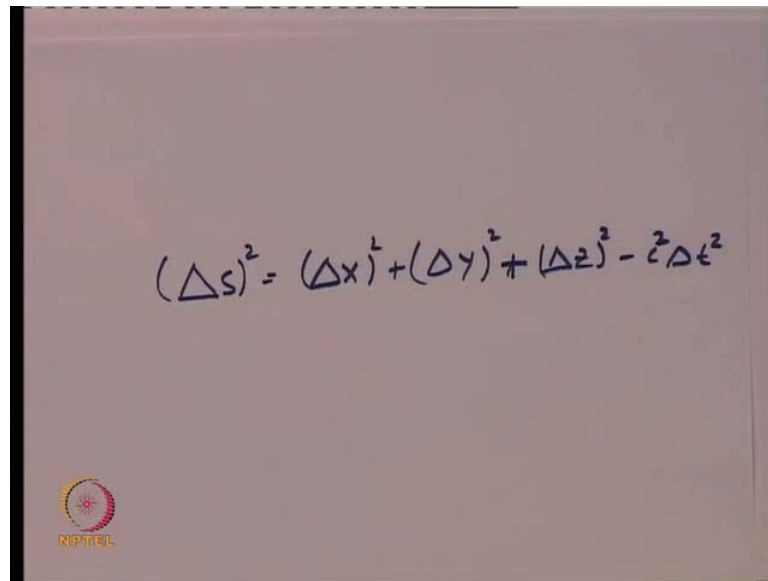 (Δs)² = (Δx)² + (Δy)² + (Δz)² - c²Δt²
NPTEL